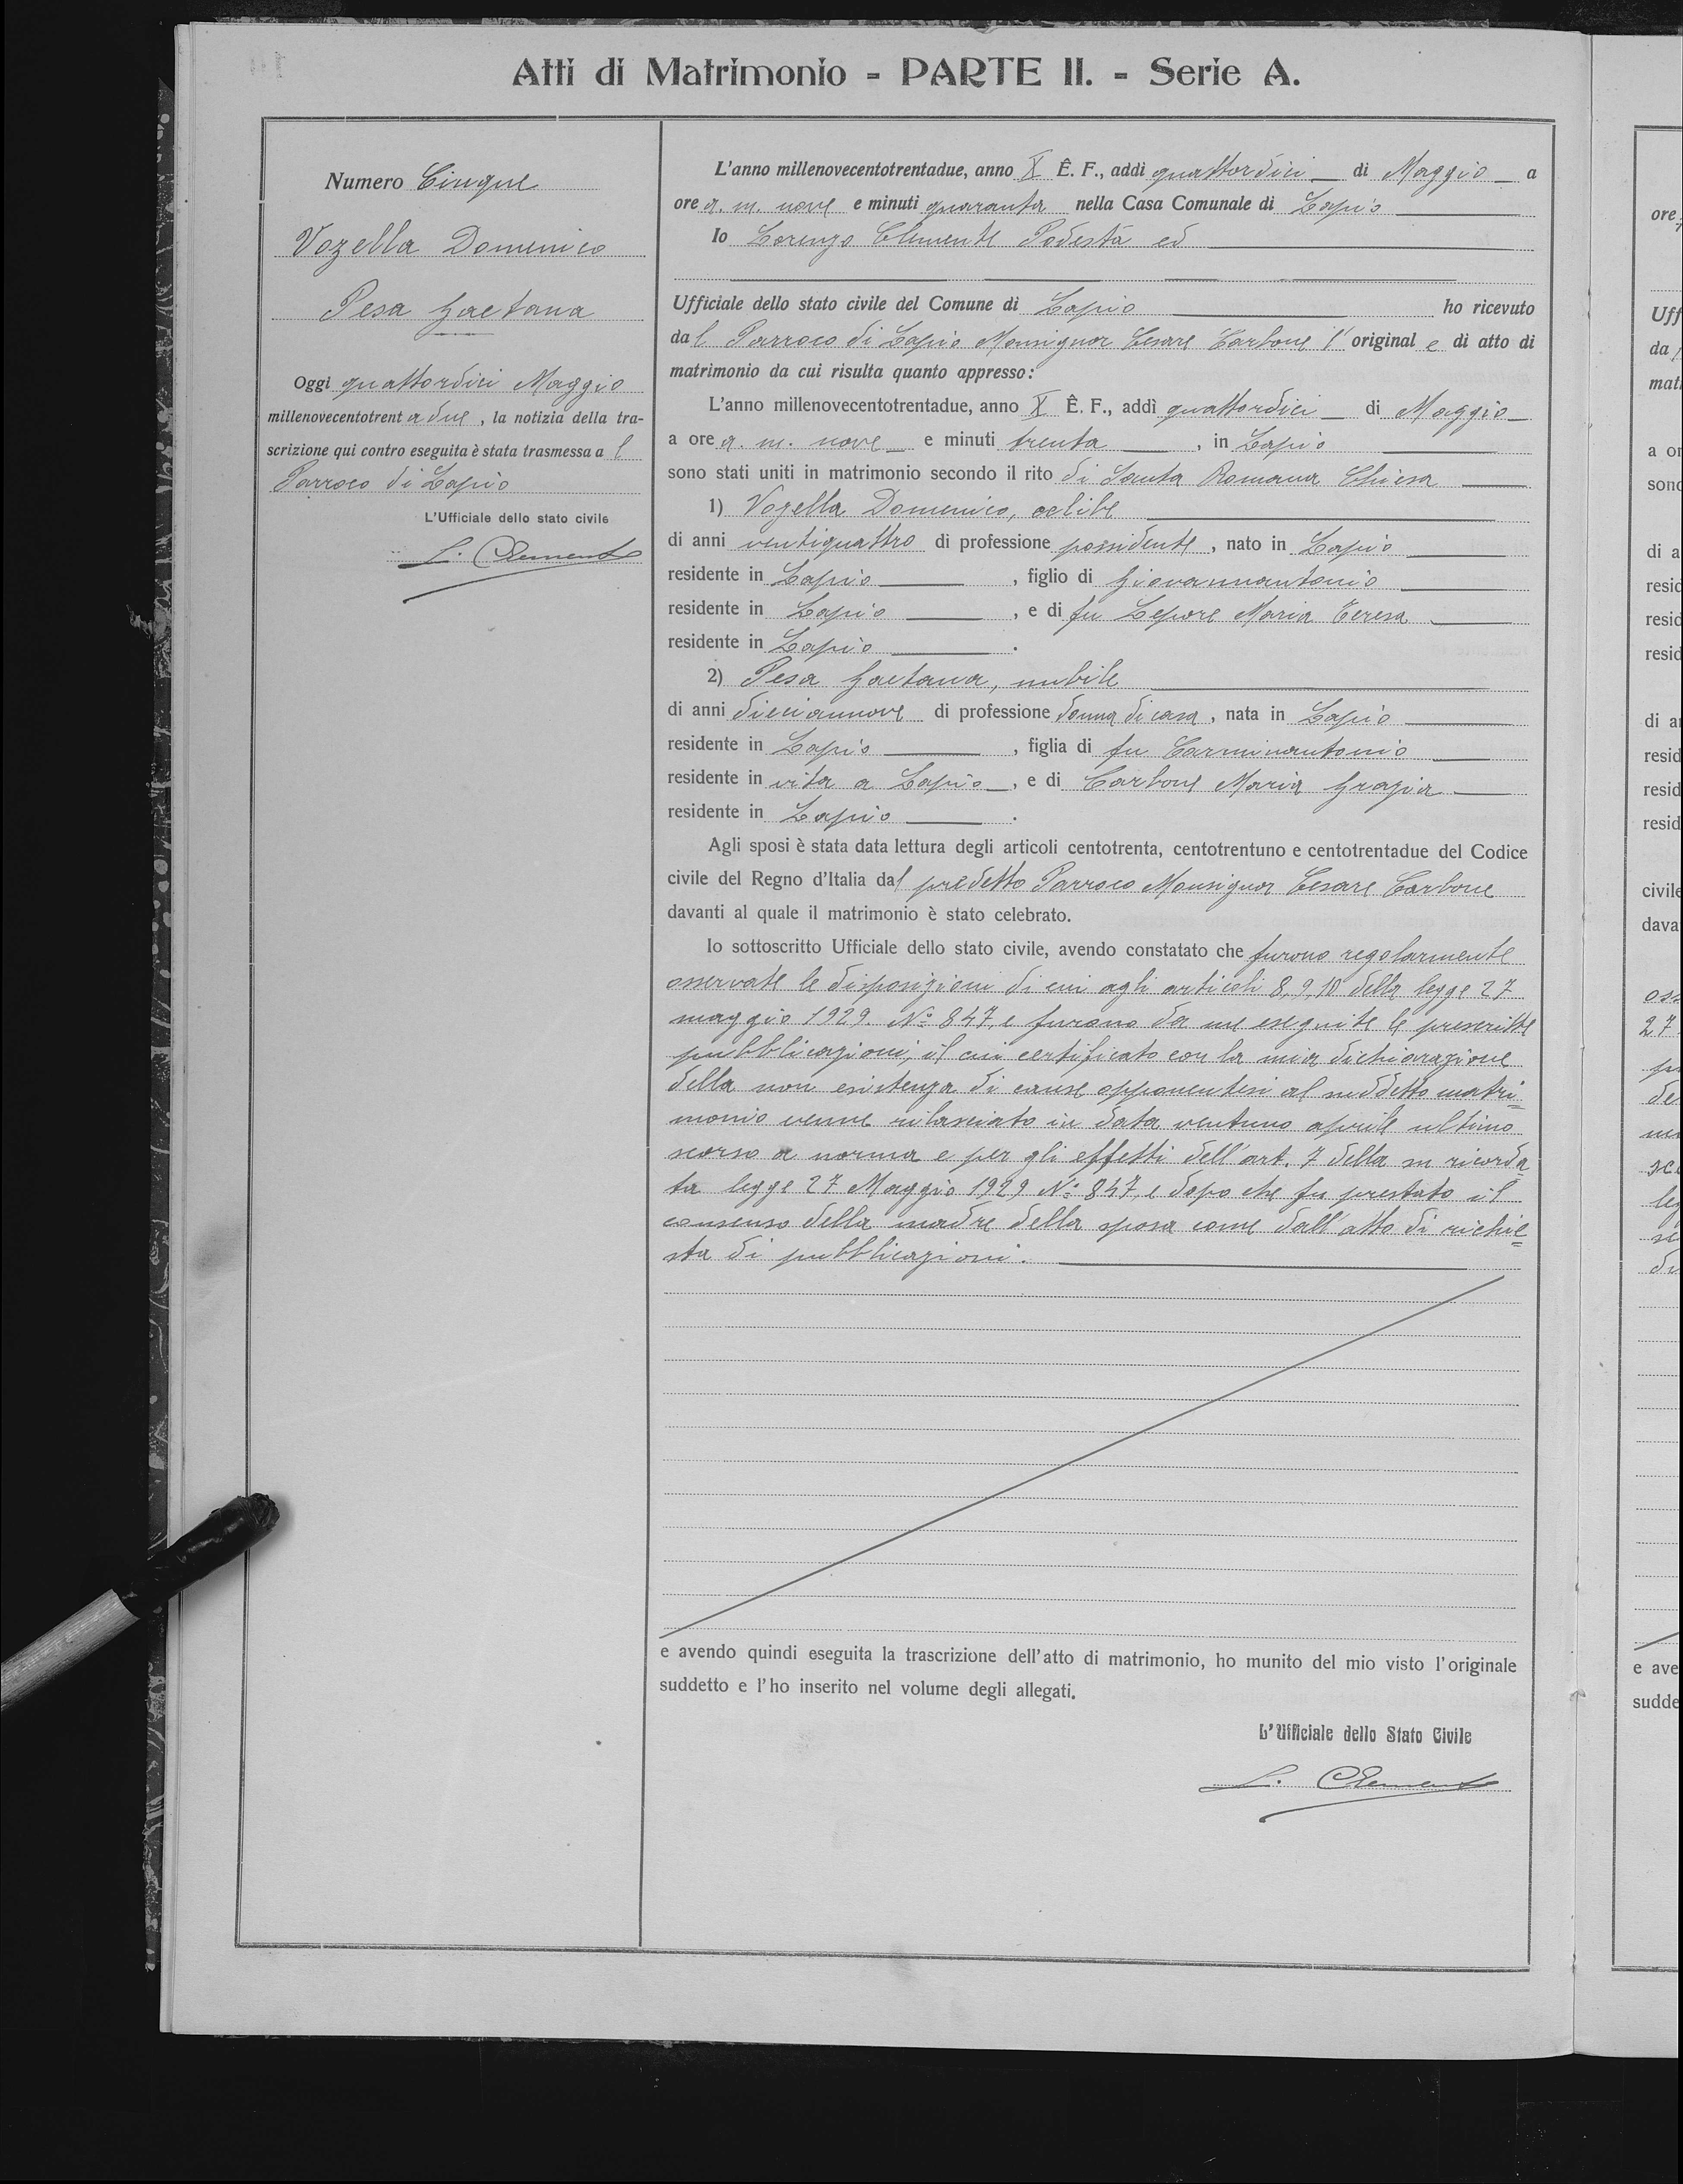 Atti di Matrimonio - PARTE II. - Serie A.
Numero Cinque
Vozella Domenico
Pesa Gaetana
Oggi quattordici Maggio
millenovecentotrent a due, la notizia della tra-
scrizione qui contro eseguita è stata trasmessa a l
Parroco di Lapio
L'Ufficiale dello stato civile
L. Clemente
L'anno millenovecentotrentadue, anno X E. F., addì quattordici di Maggio a
ore a. m. nove e minuti quaranta nella Casa Comunale di Lapio
Io Lorenzo Clemente Podestà ed
Ufficiale dello stato civile del Comune di Lapio ho ricevuto
dal Parroco di Lapio Monsignor Cesare Carbone l' original e di atto di
matrimonio da cui risulta quanto appresso:
L'anno millenovecentotrentadue, anno X E. F., addì quattordici di Maggio
a ore a. m. nove e minuti trenta, in Lapio
sono stati uniti in matrimonio secondo il rito di Santa Romana Chiesa
1) Vozella Domenico, celibe
di anni ventiquattro di professione possidente, nato in Lapio
residente in Lapio, figlio di Giovannantonio
residente in Lapio, e di fu Lepore Maria Teresa
residente in Lapio.
2) Pesa Gaetana, nubile
di anni diciannove di professione donna di casa, nata in Lapio
residente in Lapio, figlia di fu Carminantonio
residente in vita a Lapio, e di Carbone Maria Grazia
residente in Lapio.
Agli sposi è stata data lettura degli articoli centotrenta, centotrentuno e centotrentadue del Codice
civile del Regno d'Italia dal predetto Parroco Monsignor Cesare Carbone
davanti al quale il matrimonio è stato celebrato.
Io sottoscritto Ufficiale dello stato civile, avendo constatato che furono regolarmente
osservate le disposizioni di cui agli articoli 8, 9, 10 della legge 27
maggio 1929 Nº 847, e furono da me eseguite le prescritte
pubblicazioni, il cui certificato con la mia dichiarazione
della non esistenza di cause opponentesi al suddetto matri=
monio venne rilasciato in data ventuno aprile ultimo
scorso a norma e per gli effetti dell'art. 7 della su ricorda
ta legge 27 Maggio 1929 Nº 847, e dopo che fu prestato il
consenso della madre della sposa come dall'atto di richie=
sta di pubblicazioni.
e avendo quindi eseguita la trascrizione dell'atto di matrimonio, ho munito del mio visto l'originale
suddetto e l'ho inserito nel volume degli allegati.
L'Ufficiale dello Stato Civile
L. Clemente